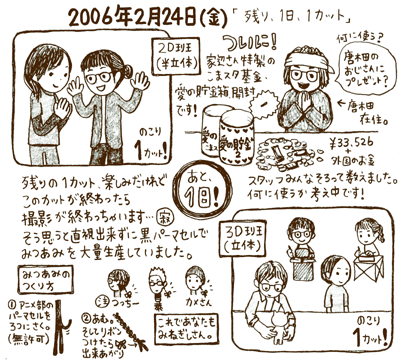 2006年2月24日(金)「残り、1日、1カット」
2D班
(半立体)
のこり
1カット!
ついに!
家辺さん特製の
こまスタ基金、
愛の貯金箱 開封
です!
愛の貯金
何に使う?
唐木田の
おじさんに
プレゼント?
←唐木田
在住。
¥33,526
+
外国のお金
スタッフみんなそろって数えました。
何に使うか考え中です!
残りの1カット、楽しみだけれど
このカットが終わったら
撮影が終わっちゃいます…寂
そう思うと直視出来ずに黒パーマセルで
みつあみを大量生産していました。
あと、
1日!
みつあみの
つくり方
①アニメ部の
パーマセルを
3つにさく。
(無許可)
②あむ。
そしてリボン
つけたら
出来あがり
つっちー
カメさん
これであなたも
みねぎしさん。
3D班
(立体)
のこり
1カット!